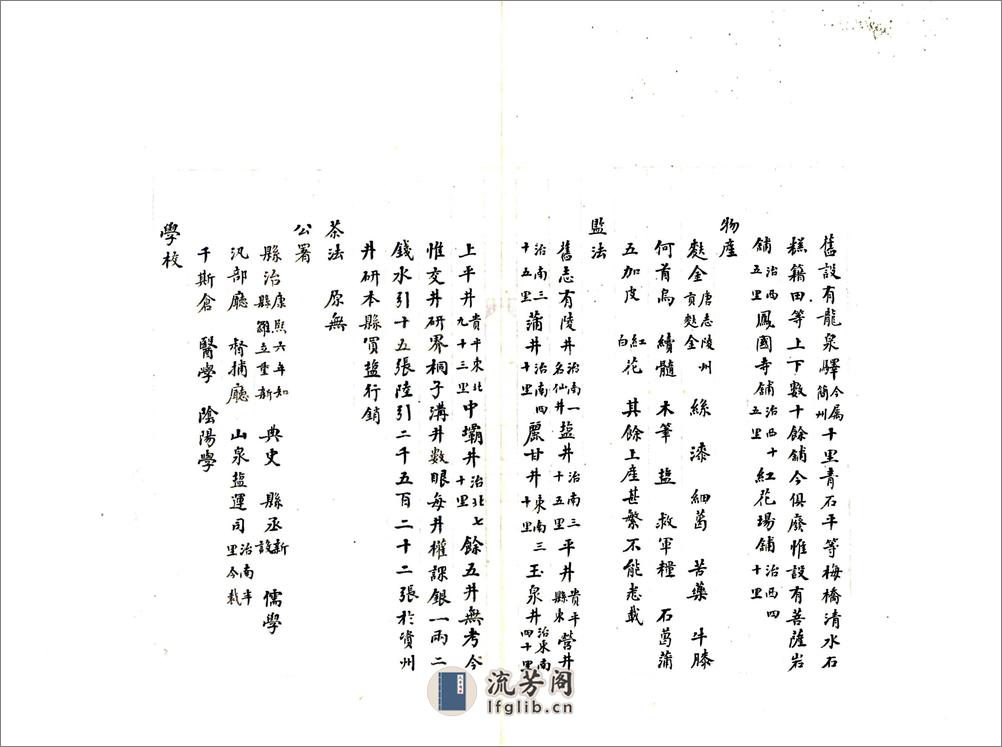 舊設有龍泉驛今属簡州十里青石平等梅橋清水石
糕籍田等上下数十餘舖今俱廢惟設有菩薩岩
舖治西五里鳳國寺舖治西十五里紅花塲舖治西四十里
物產
麩金唐志陵州貢麩金 絲 漆 細葛 苦藥 牛膝
何首烏 續髓 木筆 盐 救軍糧 石菖蒲
五加皮 紅白花 其餘土産甚繁不能悉載
盬法
舊志有陵井治南一名仙井盐井治南三十五里平井貴平縣東營井
治南三十五里蒲井治南四十里麗甘井東南三十里玉泉井治東南四十里
上平井貴平東北九十三里中壩井治北七十里餘五井無考今
惟交井研界桐子溝井数眼每井權課銀一両二
錢水引十五張陸引二千五百二十二張於資州
井研本縣買盐行銷
茶法 原無
公署
縣治康熙六年知縣羅立重新 典史 縣丞新設 儒學
汛部廳 督捕廳 山泉盐運司治南半里今裁
千斯倉 醫學 陰陽學
學校
流芳阁
lfglib.cn